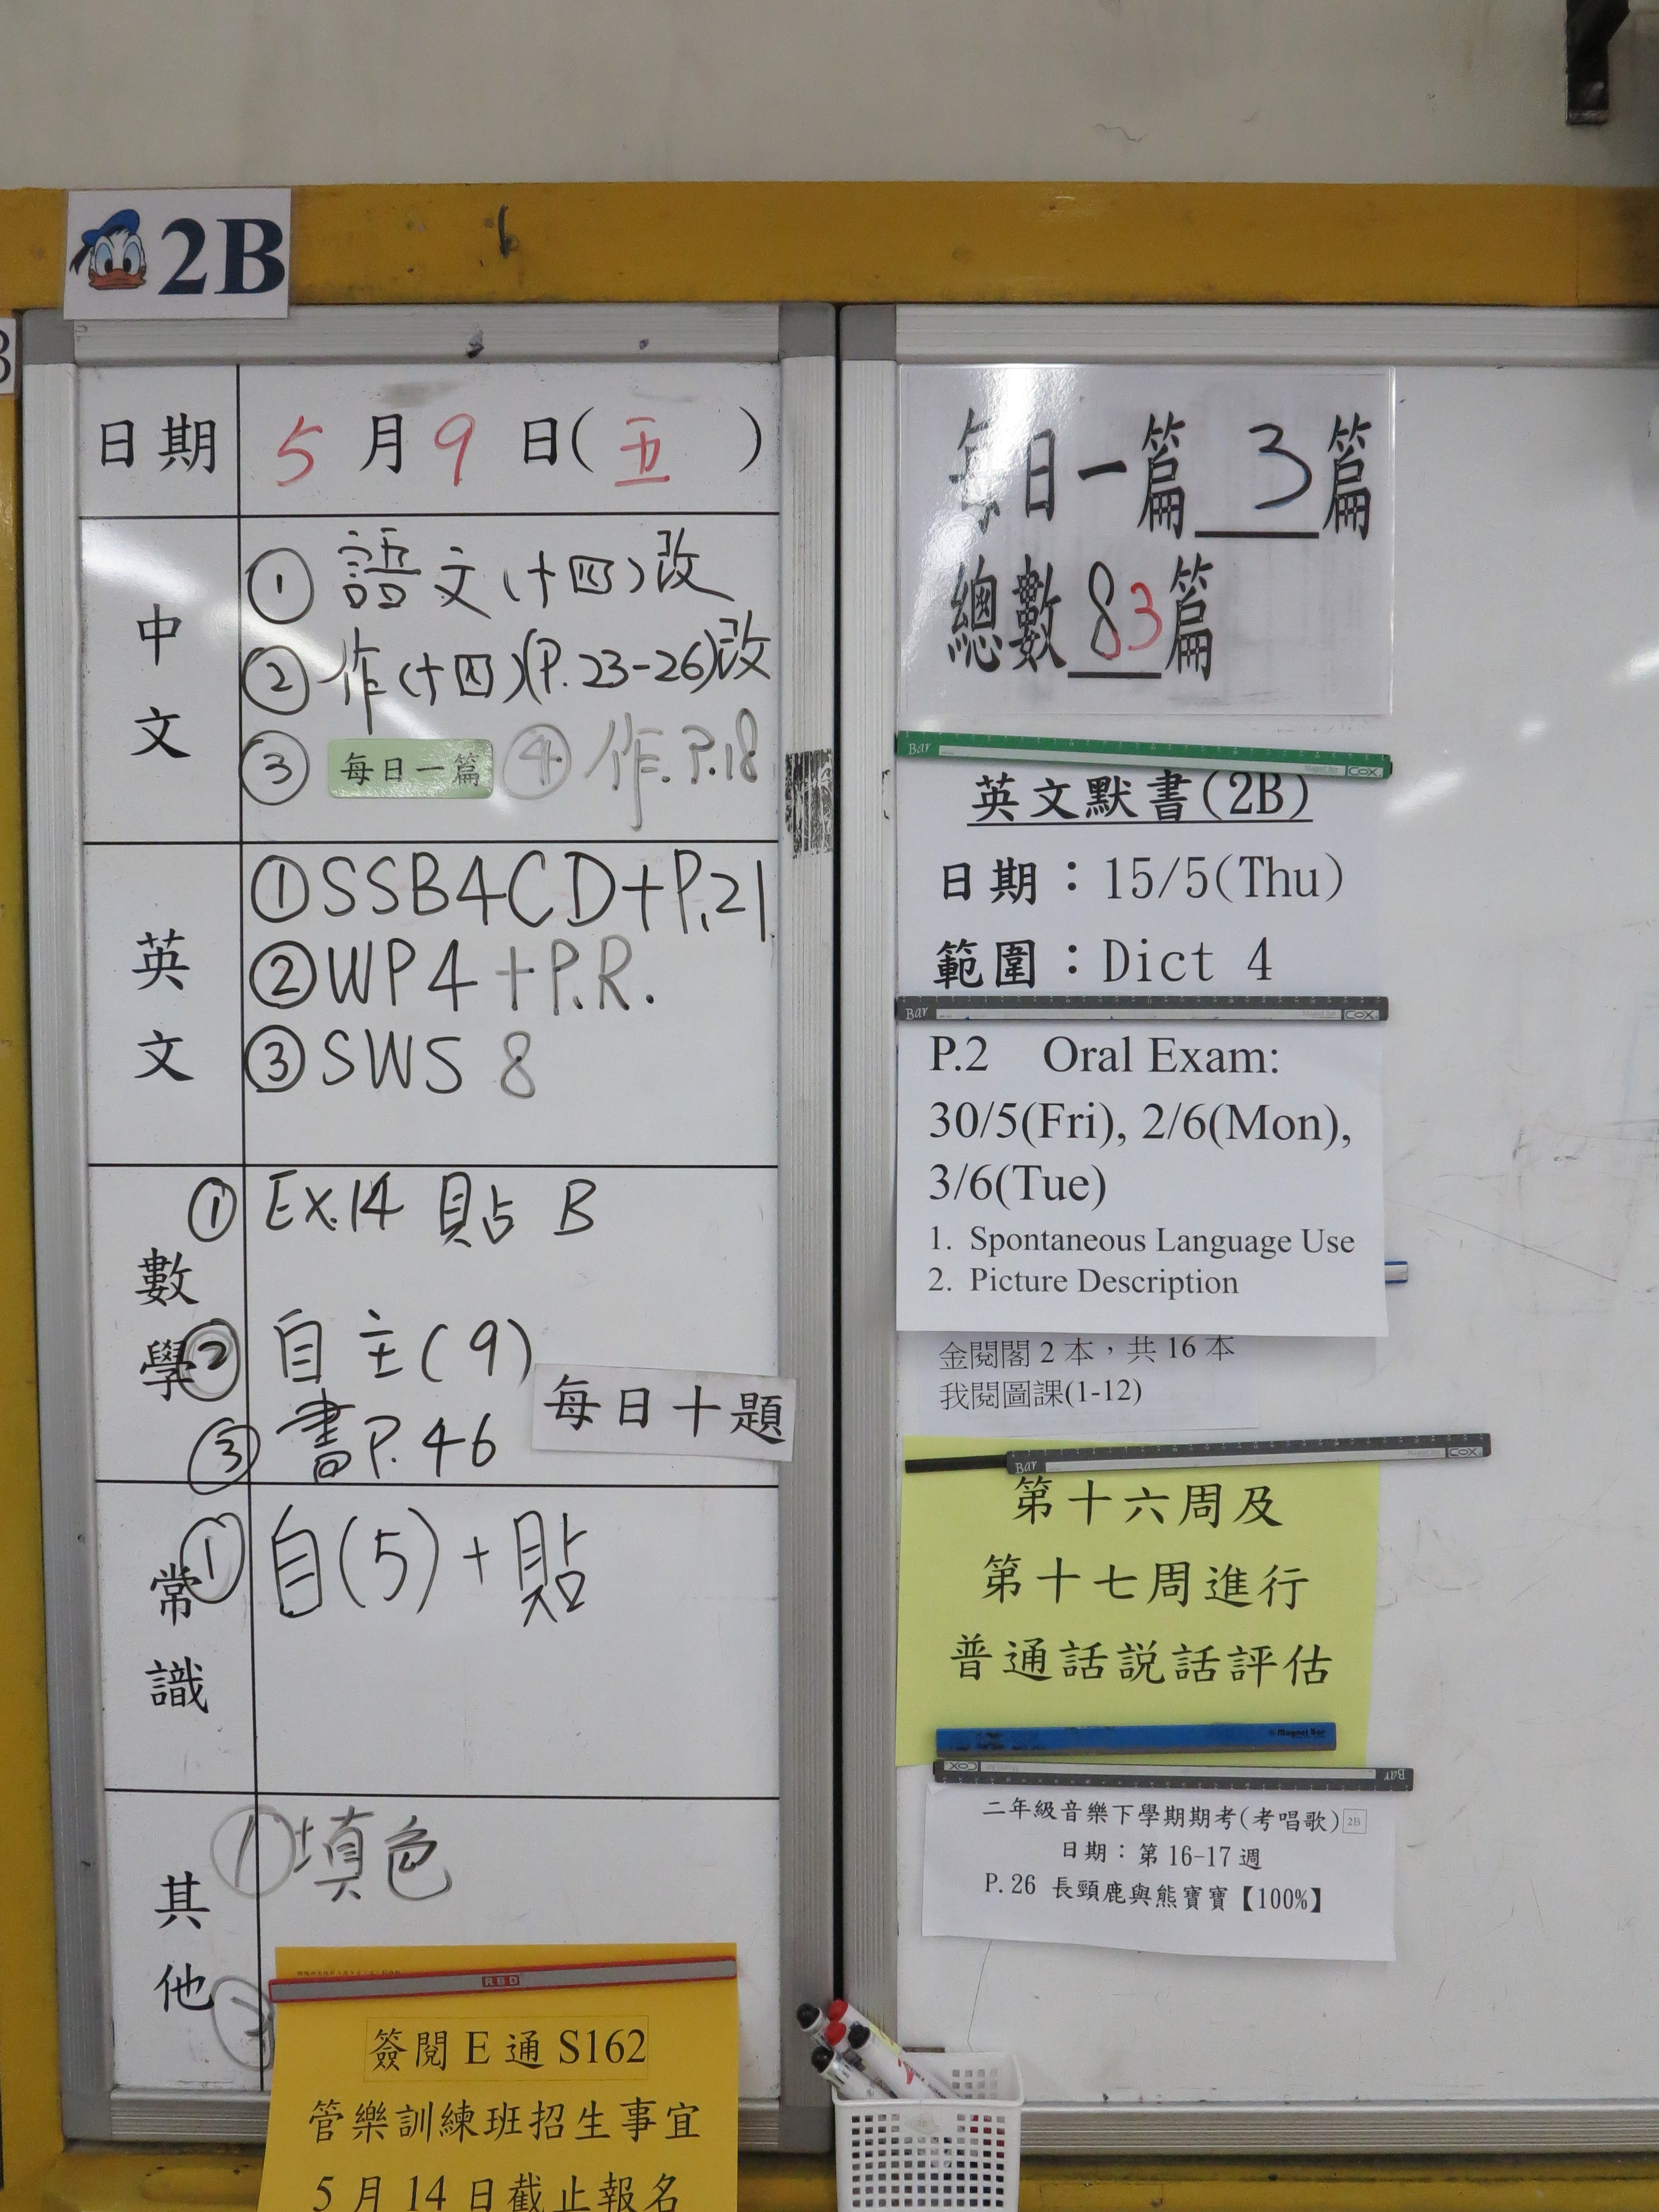 2B
日期 5月9日(五)
中文
① 語文(十四)改
② 作(十四)(P.23-26)改
③ 每日一篇 ④ 作.P.18
英文
①SSB4CD+P.21
②WP4+P.R.
③SWS 8
數學
① EX.14 貼 B
② 自主(9)
③ 書P.46 每日十題
常識
① 自(5)+貼
其他
① 填色
②
簽閱E通S162
管樂訓練班招生事宜
5月14日截止報名
每日一篇 3 篇
總數 83 篇
Bar COX
英文默書(2B)
日期：15/5(Thu)
範圍：Dict 4
Bar COX
P.2 Oral Exam:
30/5(Fri), 2/6(Mon),
3/6(Tue)
1. Spontaneous Language Use
2. Picture Description
金閱閣2本，共16本
我閱圖課(1-12)
Bar COX
第十六周及
第十七周進行
普通話説話評估
Magnet Bar
COX Bar
二年級音樂下學期期考(考唱歌) 2B
日期：第16-17週
P.26 長頸鹿與熊寶寶【100%】
RBD